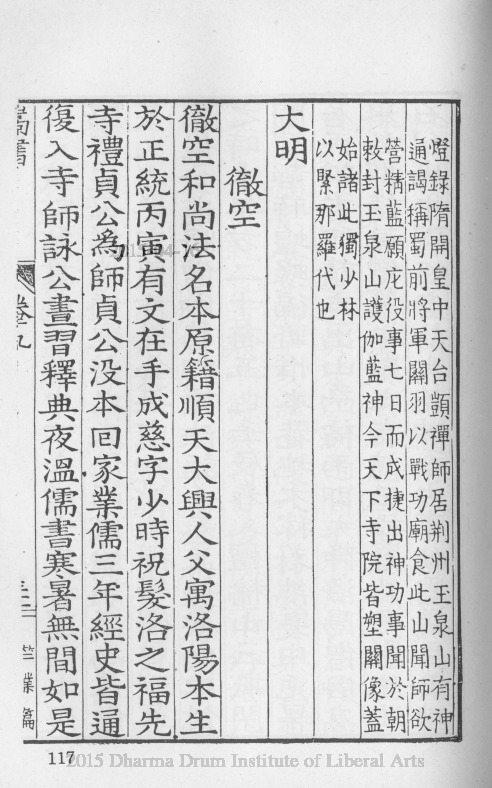 燈錄隋開皇中天台顗禪師居荆州玉泉山有神
通謁稱蜀前將軍關羽以戰功廟食此山聞師欲
營精藍願庀役事七日而成捷出神功事聞於朝
敕封玉泉山護伽藍神今天下寺院皆塑關像蓋
始諸此獨少林
以緊那羅代也
大明
徹空
徹空和尚法名本原籍順天大興人父寓洛陽本生
於正統丙寅有文在手成慈字少時祝髮洛之福先
寺禮貞公為師貞公没本回家業儒三年經史皆通
復入寺師詠公晝習釋典夜溫儒書寒暑無間如是
嵩書
卷九
三二
竺業篇
117
2015 Dharma Drum Institute of Liberal Arts